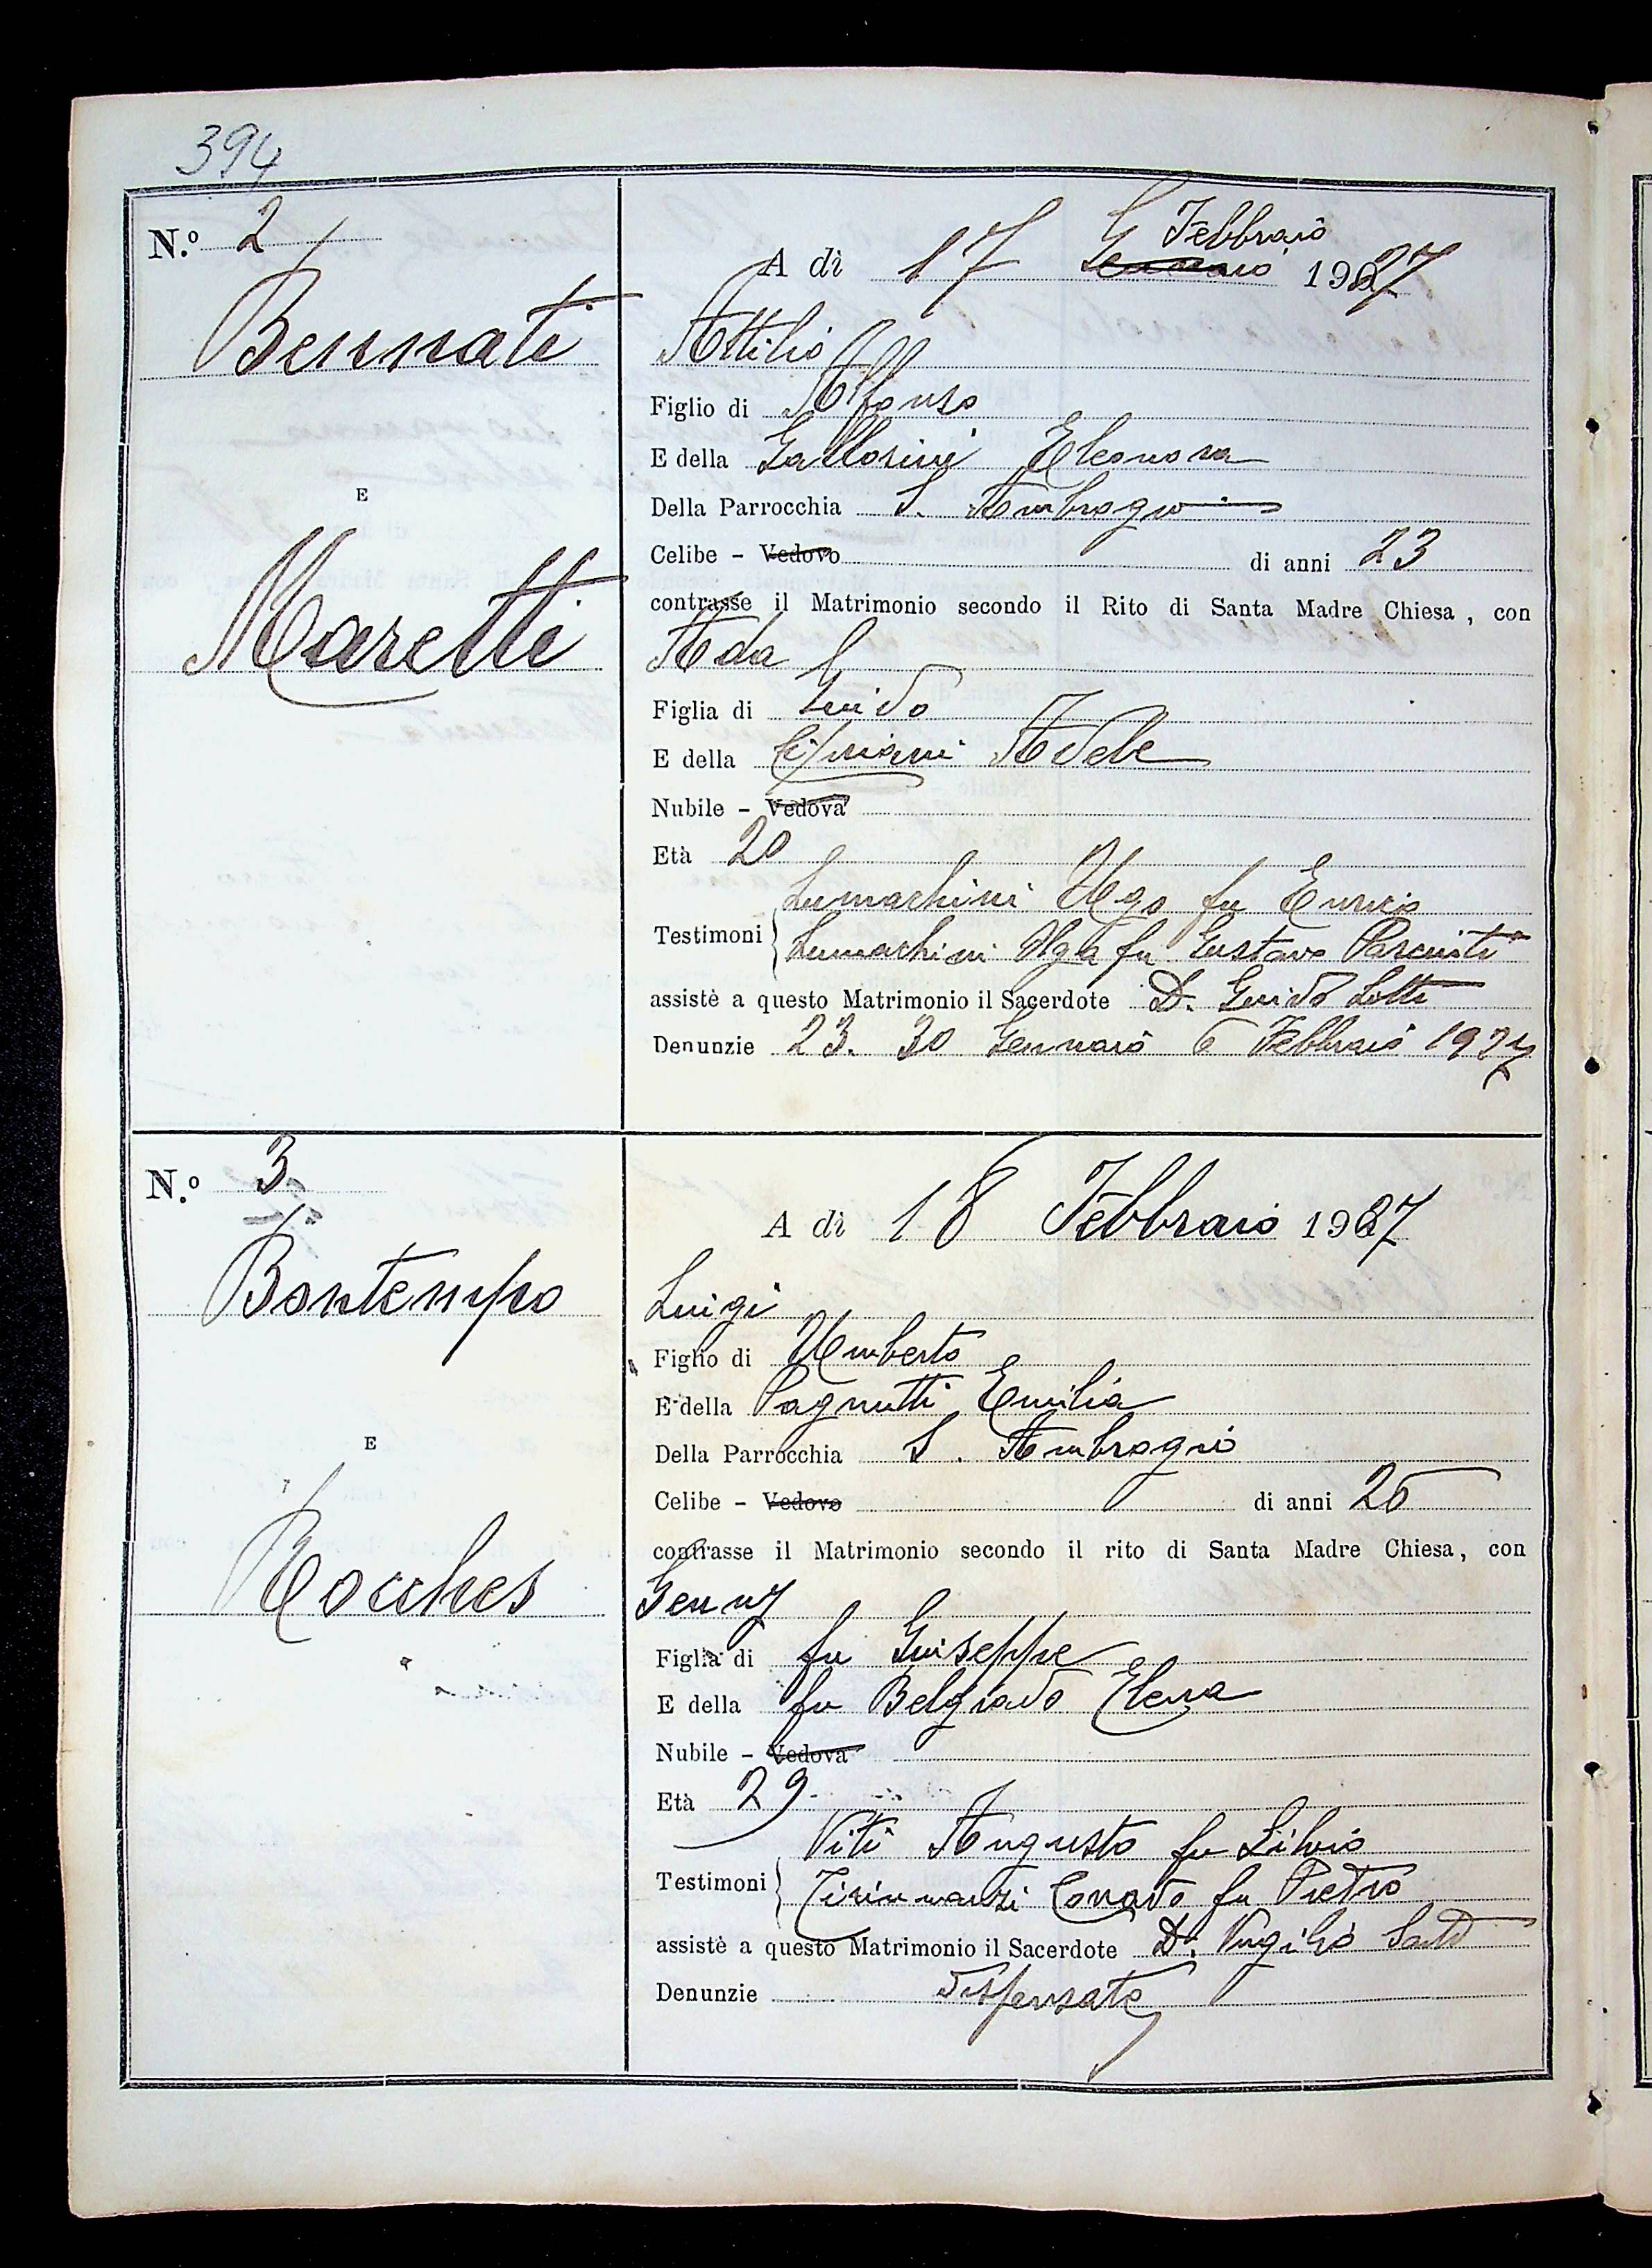 394
N.º 2
A dì 17 Gennaio Febbraio 1927
Bennati
Attilio
Figlio di Alfonso
E della Gallorini Eleonora
Della Parrocchia S. Ambrogio
E
Celibe - Vedovo di anni 23
contrasse il Matrimonio secondo il Rito di Santa Madre Chiesa, con
Maretti
Ada
Figlia di Guido
E della Cipriani Adele
Nubile - Vedova
Età 20
Testimoni Lumachini Ugo fu Enrico
Lumachini Olga fu Gustavo
assistè a questo Matrimonio il Sacerdote D. Guido Lotti
Denunzie 23. 30 Gennaio 6 Febbraio 1927
N.º 3
A dì 18 Febbraio 1927
Bontempo
Luigi
Figlio di Umberto
E della Pagnutti Emilia
Della Parrocchia S. Ambrogio
E
Celibe - Vedovo di anni 26
contrasse il Matrimonio secondo il rito di Santa Madre Chiesa, con
Rocches
Genny
Figlia di fu Giuseppe
E della fu Belgrado Elena
Nubile - Vedova
Età 29
Testimoni Viti Augusto fu Silvio
Tirinnanzi Corrado fu Pietro
assistè a questo Matrimonio il Sacerdote D. Virgilio
Denunzie dispensate